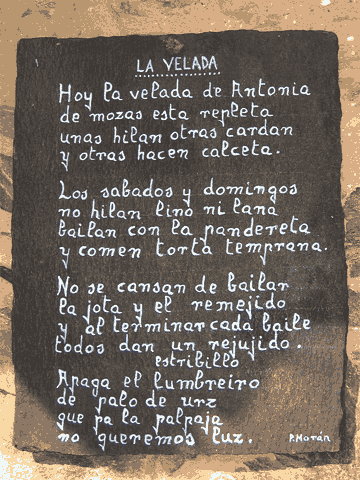 LA VELADA
Hoy la velada de Antonia
de mozas esta repleta
unas hilan otras cardan
y otras hacen calceta.
Los sabados y domingos
no hilan lino ni lana
bailan con la pandereta
y comen torta temprana.
No se cansan de bailar
la jota y el remejido
y al terminar cada baile
todos dan un rejujido.
estribillo
Apaga el lumbreiro
de palo de urz
que pa la palpaja
no queremos luz.
P. Morán